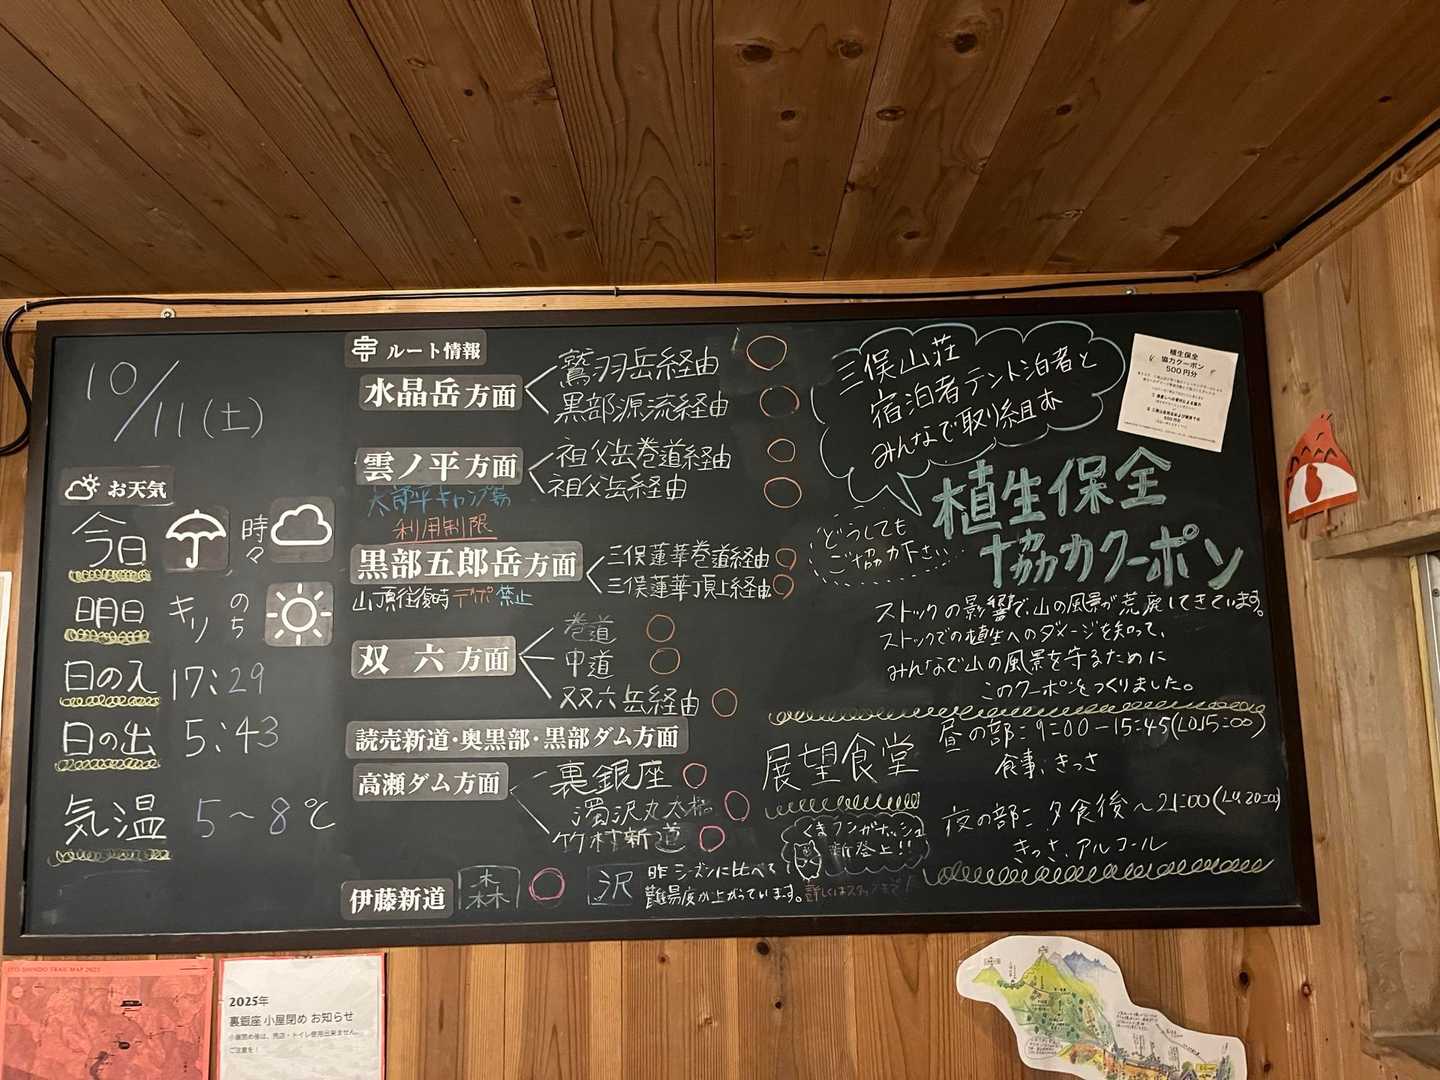 10/11(土)
お天気
今日 時々
明日 キリ のち
日の入 17:29
日の出 5:43
気温 5〜8℃
ルート情報
水晶岳方面
鷲羽岳経由 ○
黒部源流経由 ○
雲ノ平方面
祖父岳巻道経由 ○
祖父岳経由 ○
太郎平キャンプ場
利用制限
黒部五郎岳方面
三俣蓮華巻道経由 ○
三俣蓮華頂上経由 ○
山頂往復時デポ禁止
双六方面
巻道 ○
中道 ○
双六岳経由 ○
読売新道・奥黒部・黒部ダム方面
高瀬ダム方面
裏銀座 ○
濁沢丸太橋 ○
竹村新道 ○
伊藤新道
森 ○
沢
昨シーズンに比べて
難易度が上がっています。
三俣山荘
宿泊者テント泊者と
みんなで取り組む
植生保全
協力クーポン
どうしても
ご協力下さい
ストックの影響で、山の風景が荒廃してきています。
ストックでの植生へのダメージを知って、
みんなで山の風景を守るために
このクーポンをつくりました。
展望食堂
昼の部：9:00-15:45(LO15:00)
食事、きっさ
夜の部：夕食後〜21:00(L.O.20:00)
きっさ、アルコール
新登上!!
詳しくはスタッフまで!
植生保全
協力クーポン
500円分
ITO SHINDO TRAIL MAP 2025
2025年
裏銀座 小屋閉め お知らせ
小屋閉め後は、売店・トイレ使用出来ません。
ご注意を！